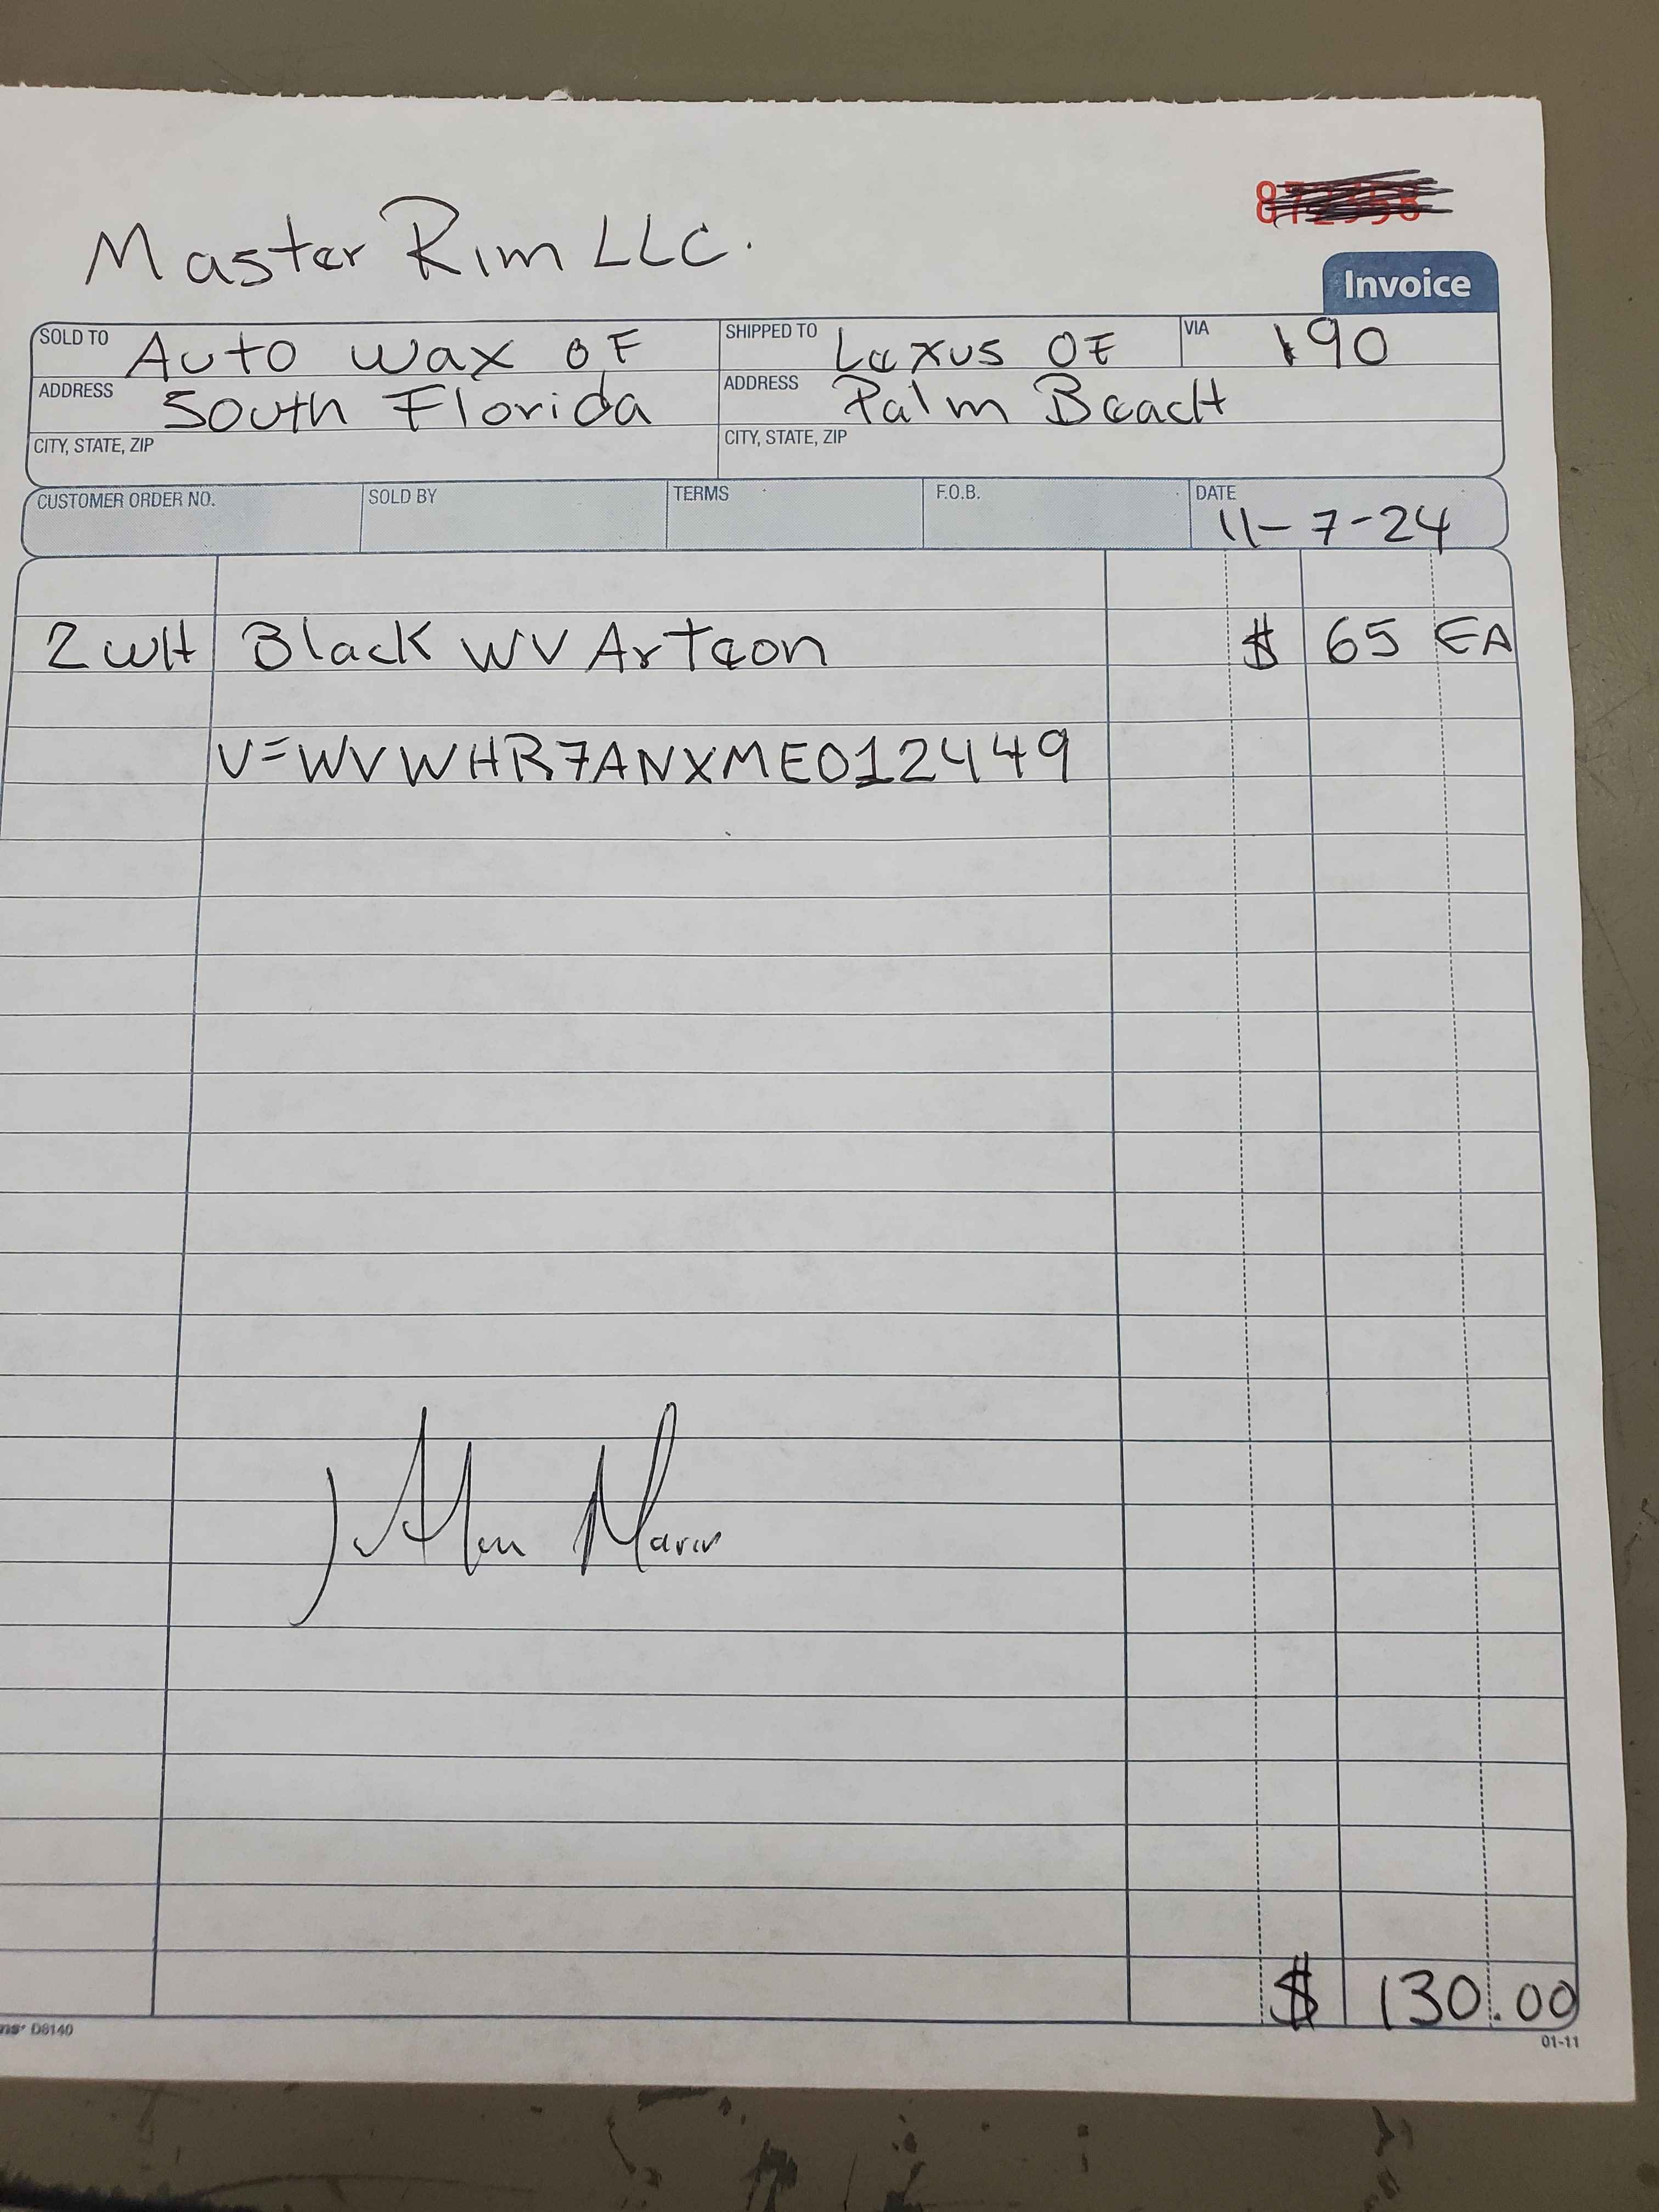 Master Rim LLC.
Invoice
SOLD TO Auto wax OF
SHIPPED TO Lexus OF
VIA 190
ADDRESS South Florida
ADDRESS Palm BeacH
CITY, STATE, ZIP
CITY, STATE, ZIP
CUSTOMER ORDER NO. SOLD BY TERMS F.O.B. DATE
11-7-24
2 WH Black WV Arteon $ 65 EA
V=WVWHR7ANXME012449
$ 130.00
D8140
01-11